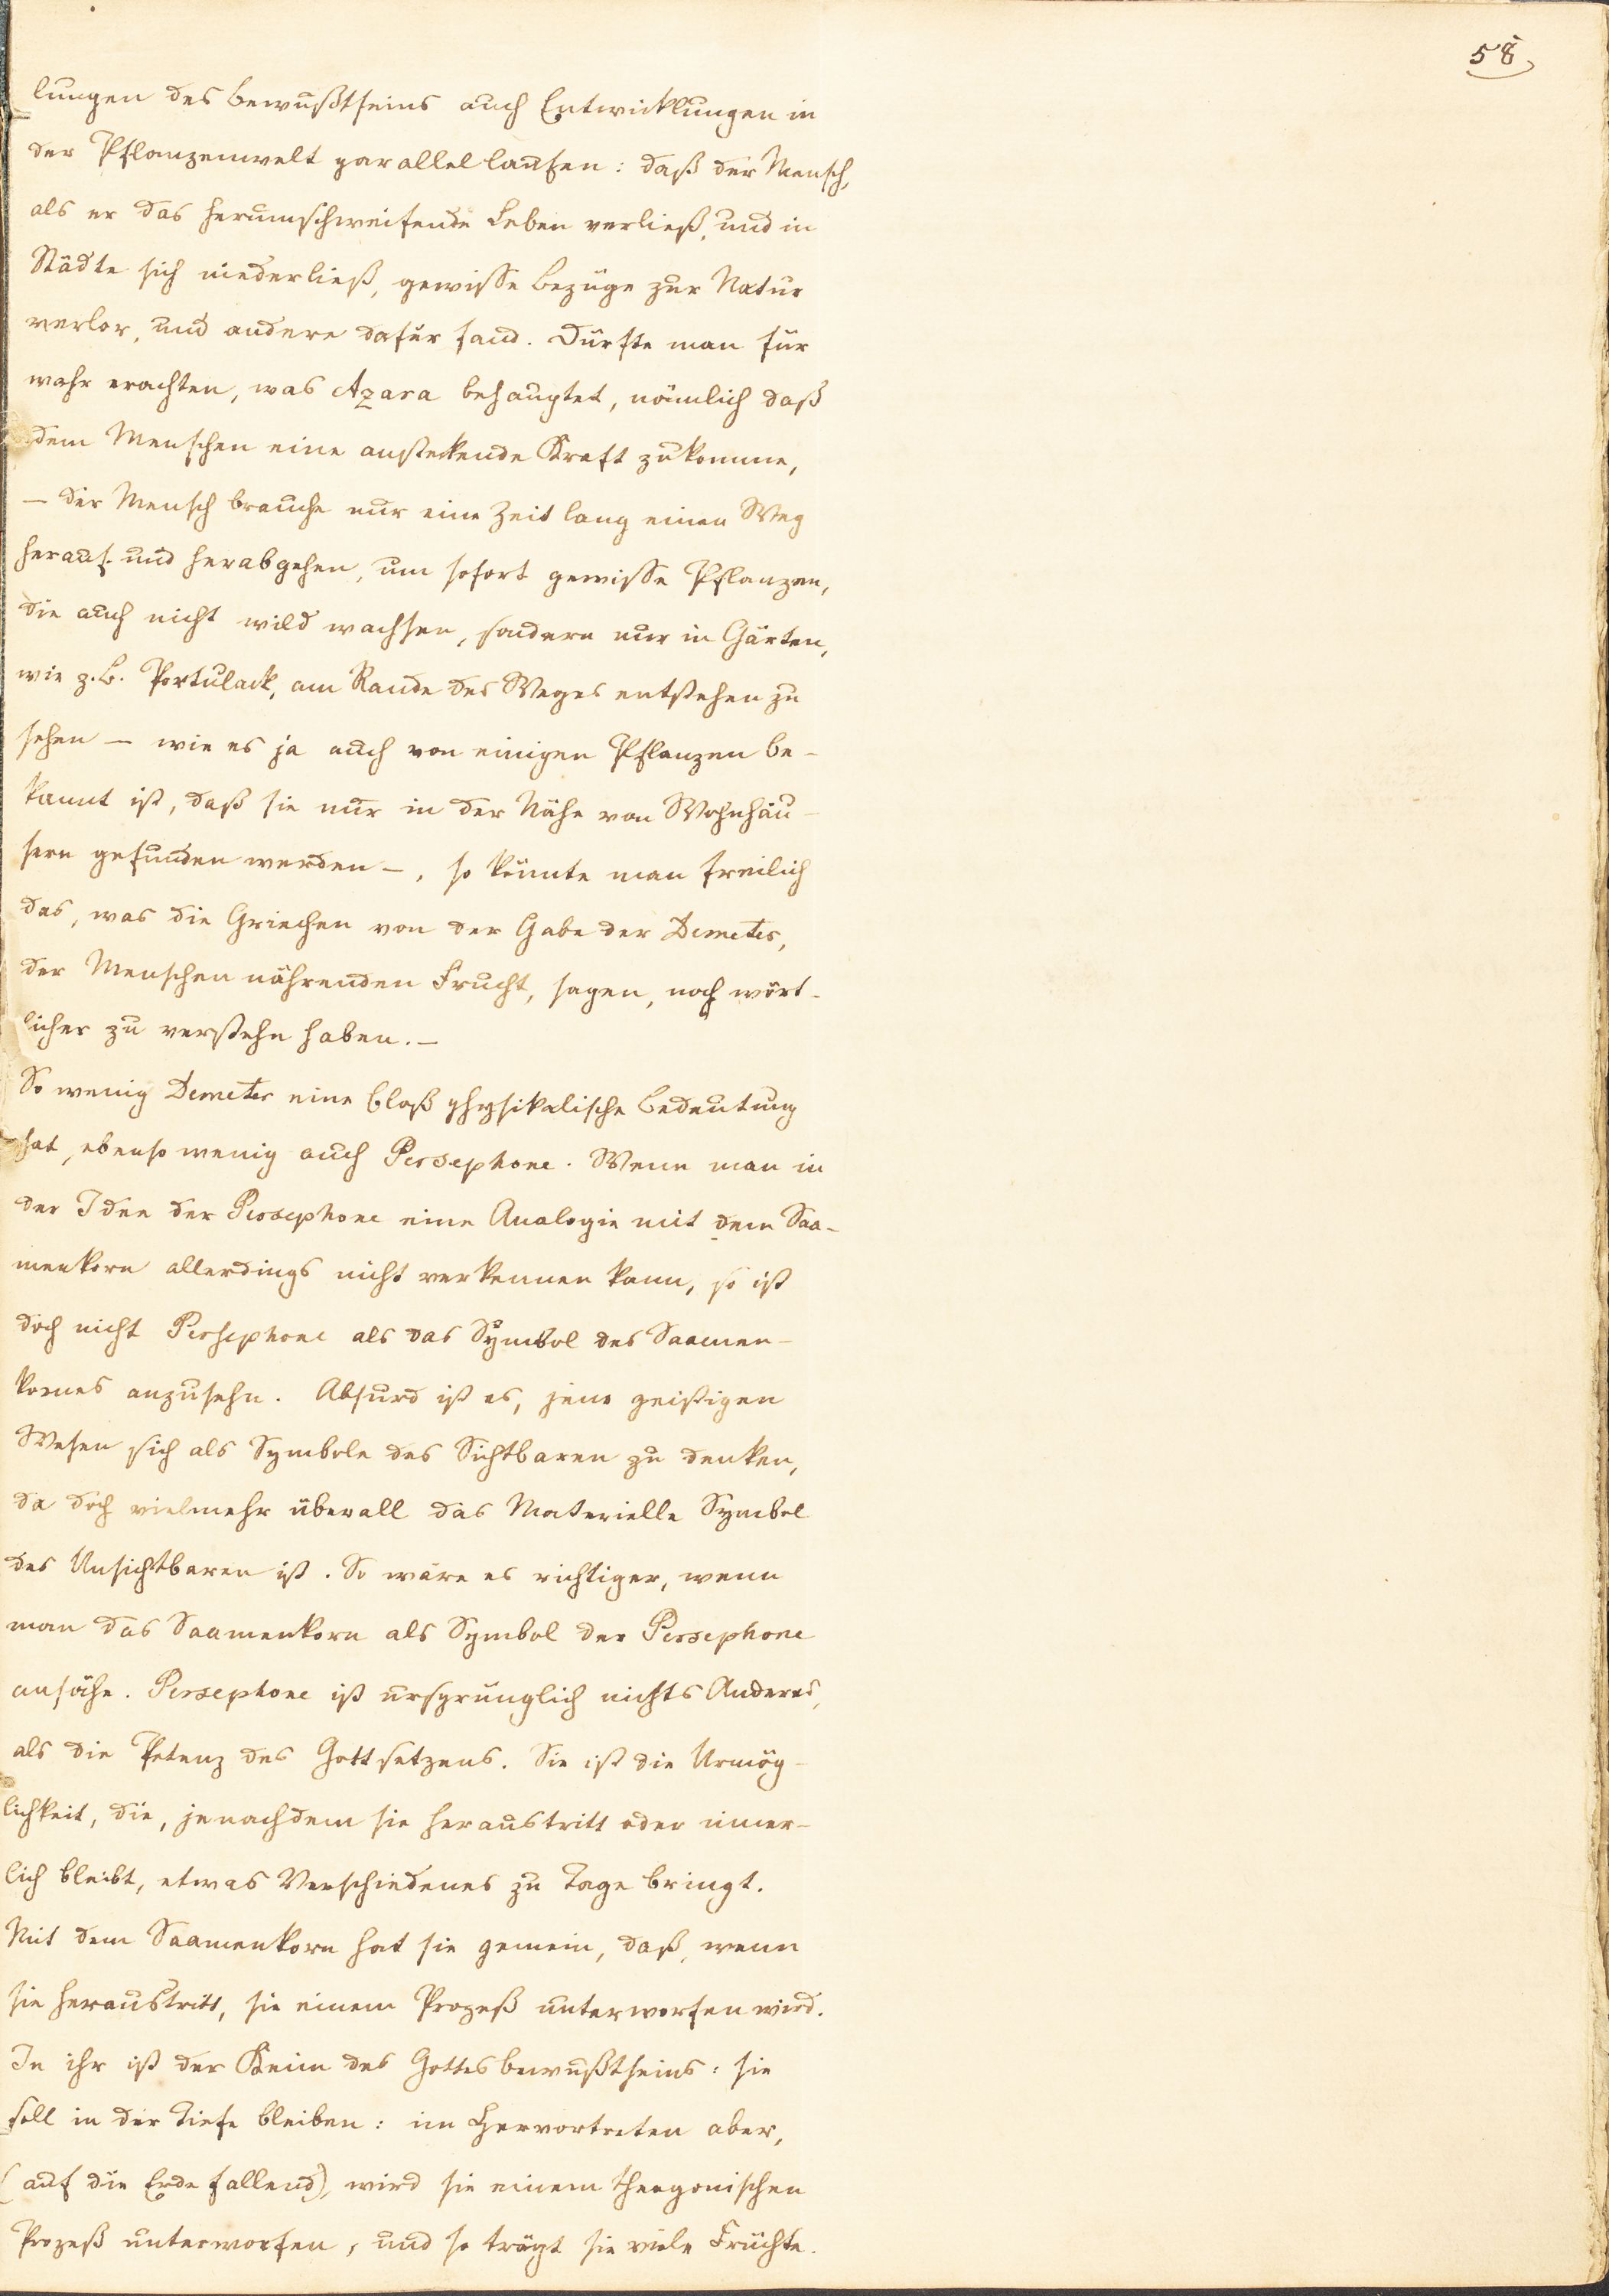 58
lungen des Bewußtseins auch Entwicklungen in
der Pflanzenwelt parallel laufen: daß der Mensch,
als er das herumschweifende Leben verließ, und in
Städte sich niederließ, gewisse Bezüge zur Natur
verlor, und andere dafür fand. Dürfte man für
wahr erachten, was Azara behauptet, nämlich daß
dem Menschen eine ansteckende Kraft zukomme,
— der Mensch brauche nur eine Zeit lang einen Weg
herauf- und herabgehen, um sofort gewisse Pflanzen,
die auch nicht wild wachsen, sondern nur in Gärten,
wie z.B. Portulack, am Rande des Weges entstehen zu
sehen — wie es ja auch von einigen Pflanzen be-
kannt ist, daß sie nur in der Nähe von Wohnhäu-
sern gefunden werden —, so könnte man freilich
das, was die Griechen von der Gabe der Demeter,
der Menschen nährenden Frucht, sagen, noch wört-
licher zu verstehn haben. —
So wenig Demeter eine bloß physikalische Bedeutung
hat, ebenso wenig auch Persephone. Wenn man in
der Idee der Persephone eine Analogie mit dem Saa-
menkorn allerdings nicht verkennen kann, so ist
doch nicht Persephone als das Symbol des Saamen-
kornes anzusehn. Absurd ist es, jene geistigen
Wesen sich als Symbole des Sichtbaren zu denken,
da doch vielmehr überall das Materielle Symbol
des Unsichtbaren ist. So wäre es richtiger, wenn
man das Saamenkorn als Symbol der Persephone
ansähe. Persephone ist ursprünglich nichts Anderes,
als die Potenz des Gottsetzens. Sie ist die Urmög-
lichkeit, die, jenachdem sie heraustritt oder inner-
lich bleibt, etwas Verschiedenes zu Tage bringt.
Mit dem Saamenkorn hat sie gemein, daß, wenn
sie heraustritt, sie einem Prozeß unterworfen wird.
In ihr ist der Keim des Gottesbewußtseins: sie
soll in der Tiefe bleiben: im Hervortreten aber,
(auf die Erde fallend), wird sie einem theogonischen
Prozeß unterworfen, und so trägt sie viele Früchte.